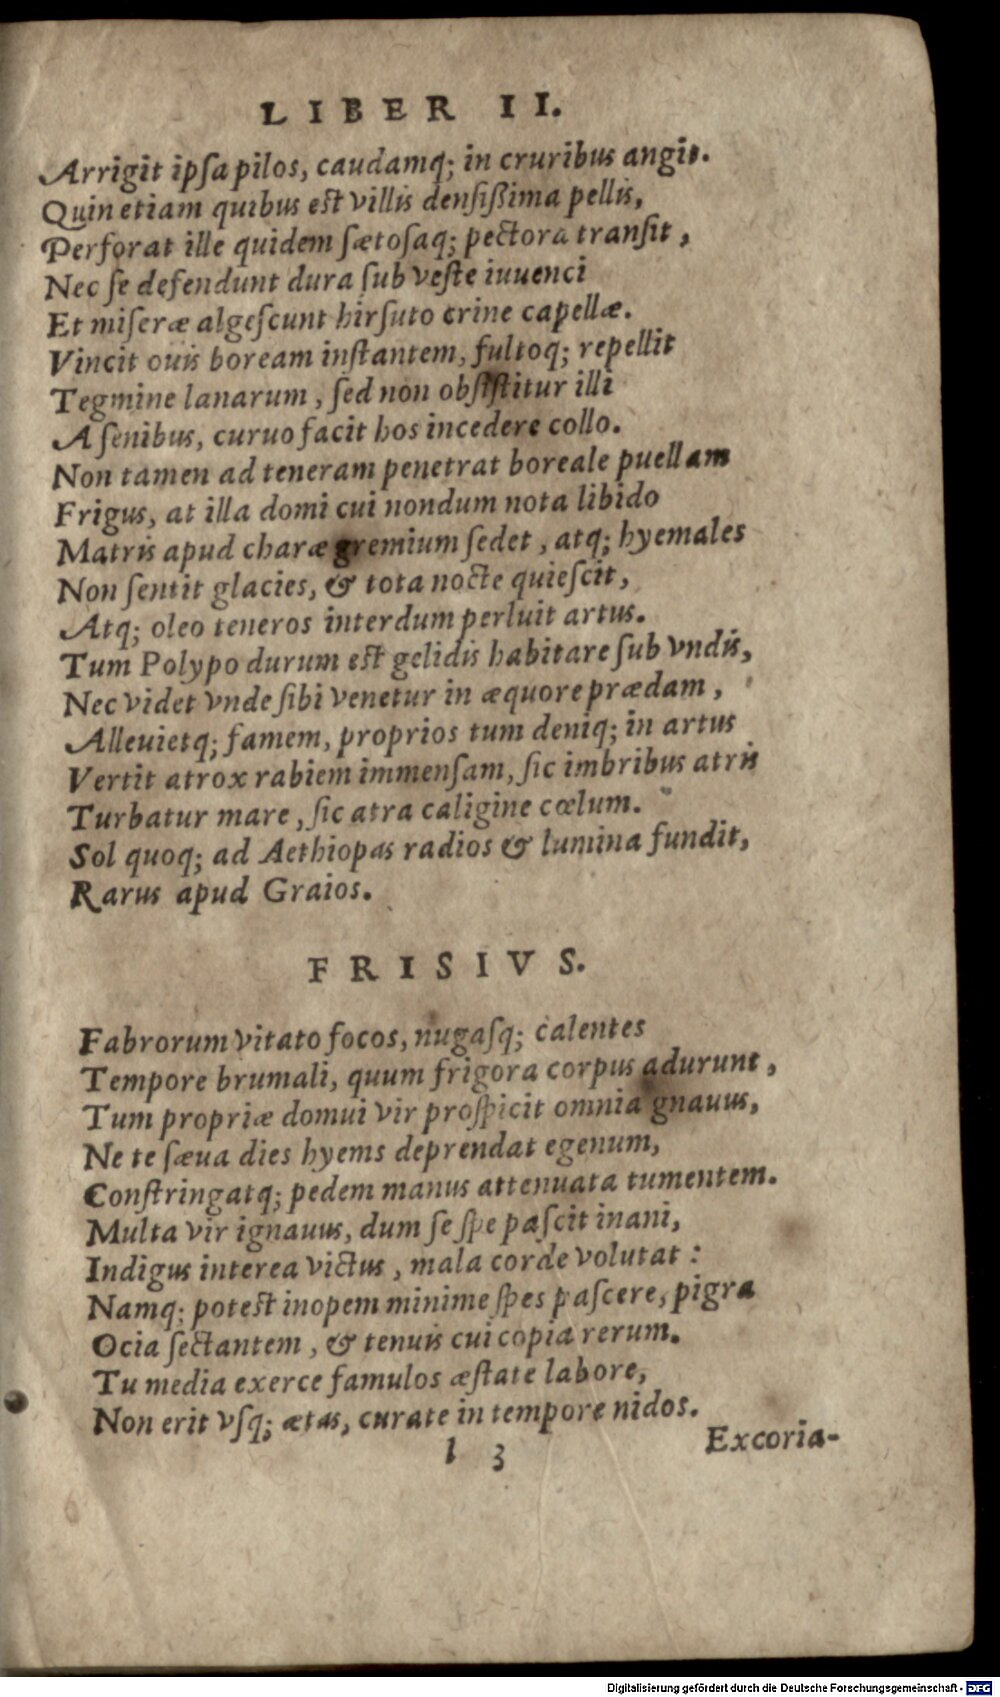 LIBER II.
Arrigit ipſa pilos, caudamq́; in cruribus angit.
Quin etiam quibus est villis denſiſsima pellis,
Perforat ille quidem ſætoſaq́; pectora tranſit,
Nec ſe defendunt dura ſub veſte iuuenci
Et miſeræ algeſcunt hirſuto crine capellæ.
Vincit ouis boream inſtantem, fultoq́; repellit
Tegmine lanarum, ſed non obſiſtitur illi
A ſenibus, curuo facit hos incedere collo.
Non tamen ad teneram penetrat boreale puellam
Frigus, at illa domi cui nondum nota libido
Matris apud charæ gremium ſedet, atq; hyemales
Non ſentit glacies, & tota nocte quieſcit,
Atq; oleo teneros interdum perluit artus.
Tum Polypo durum est gelidis habitare ſub vndis,
Nec videt vnde ſibi venetur in æquore prædam,
Alleuietq; famem, proprios tum deniq; in artus
Vertit atrox rabiem immenſam, ſic imbribus atris
Turbatur mare, ſic atra caligine cœlum.
Sol quoq; ad Aethiopas radios & lumina fundit,
Rarus apud Graios.
FRISIVS.
Fabrorum vitato focos, nugaſq; calentes
Tempore brumali, quum frigora corpus adurunt,
Tum propriæ domui vir proſpicit omnia gnauus,
Ne te ſæua dies hyems deprendat egenum,
Conſtringatq; pedem manus attenuata tumentem.
Multa vir ignauus, dum ſe ſpe paſcit inani,
Indigus interea victus, mala corde volutat:
Namq; potest inopem minime ſpes paſcere, pigra
Ocia ſectantem, & tenuis cui copia rerum.
Tu media exerce famulos æſtate labore,
Non erit vſq; ætas, curate in tempore nidos.
l 3 Excoria-
Digitalisierung gefördert durch die Deutsche Forschungsgemeinschaft - DFG